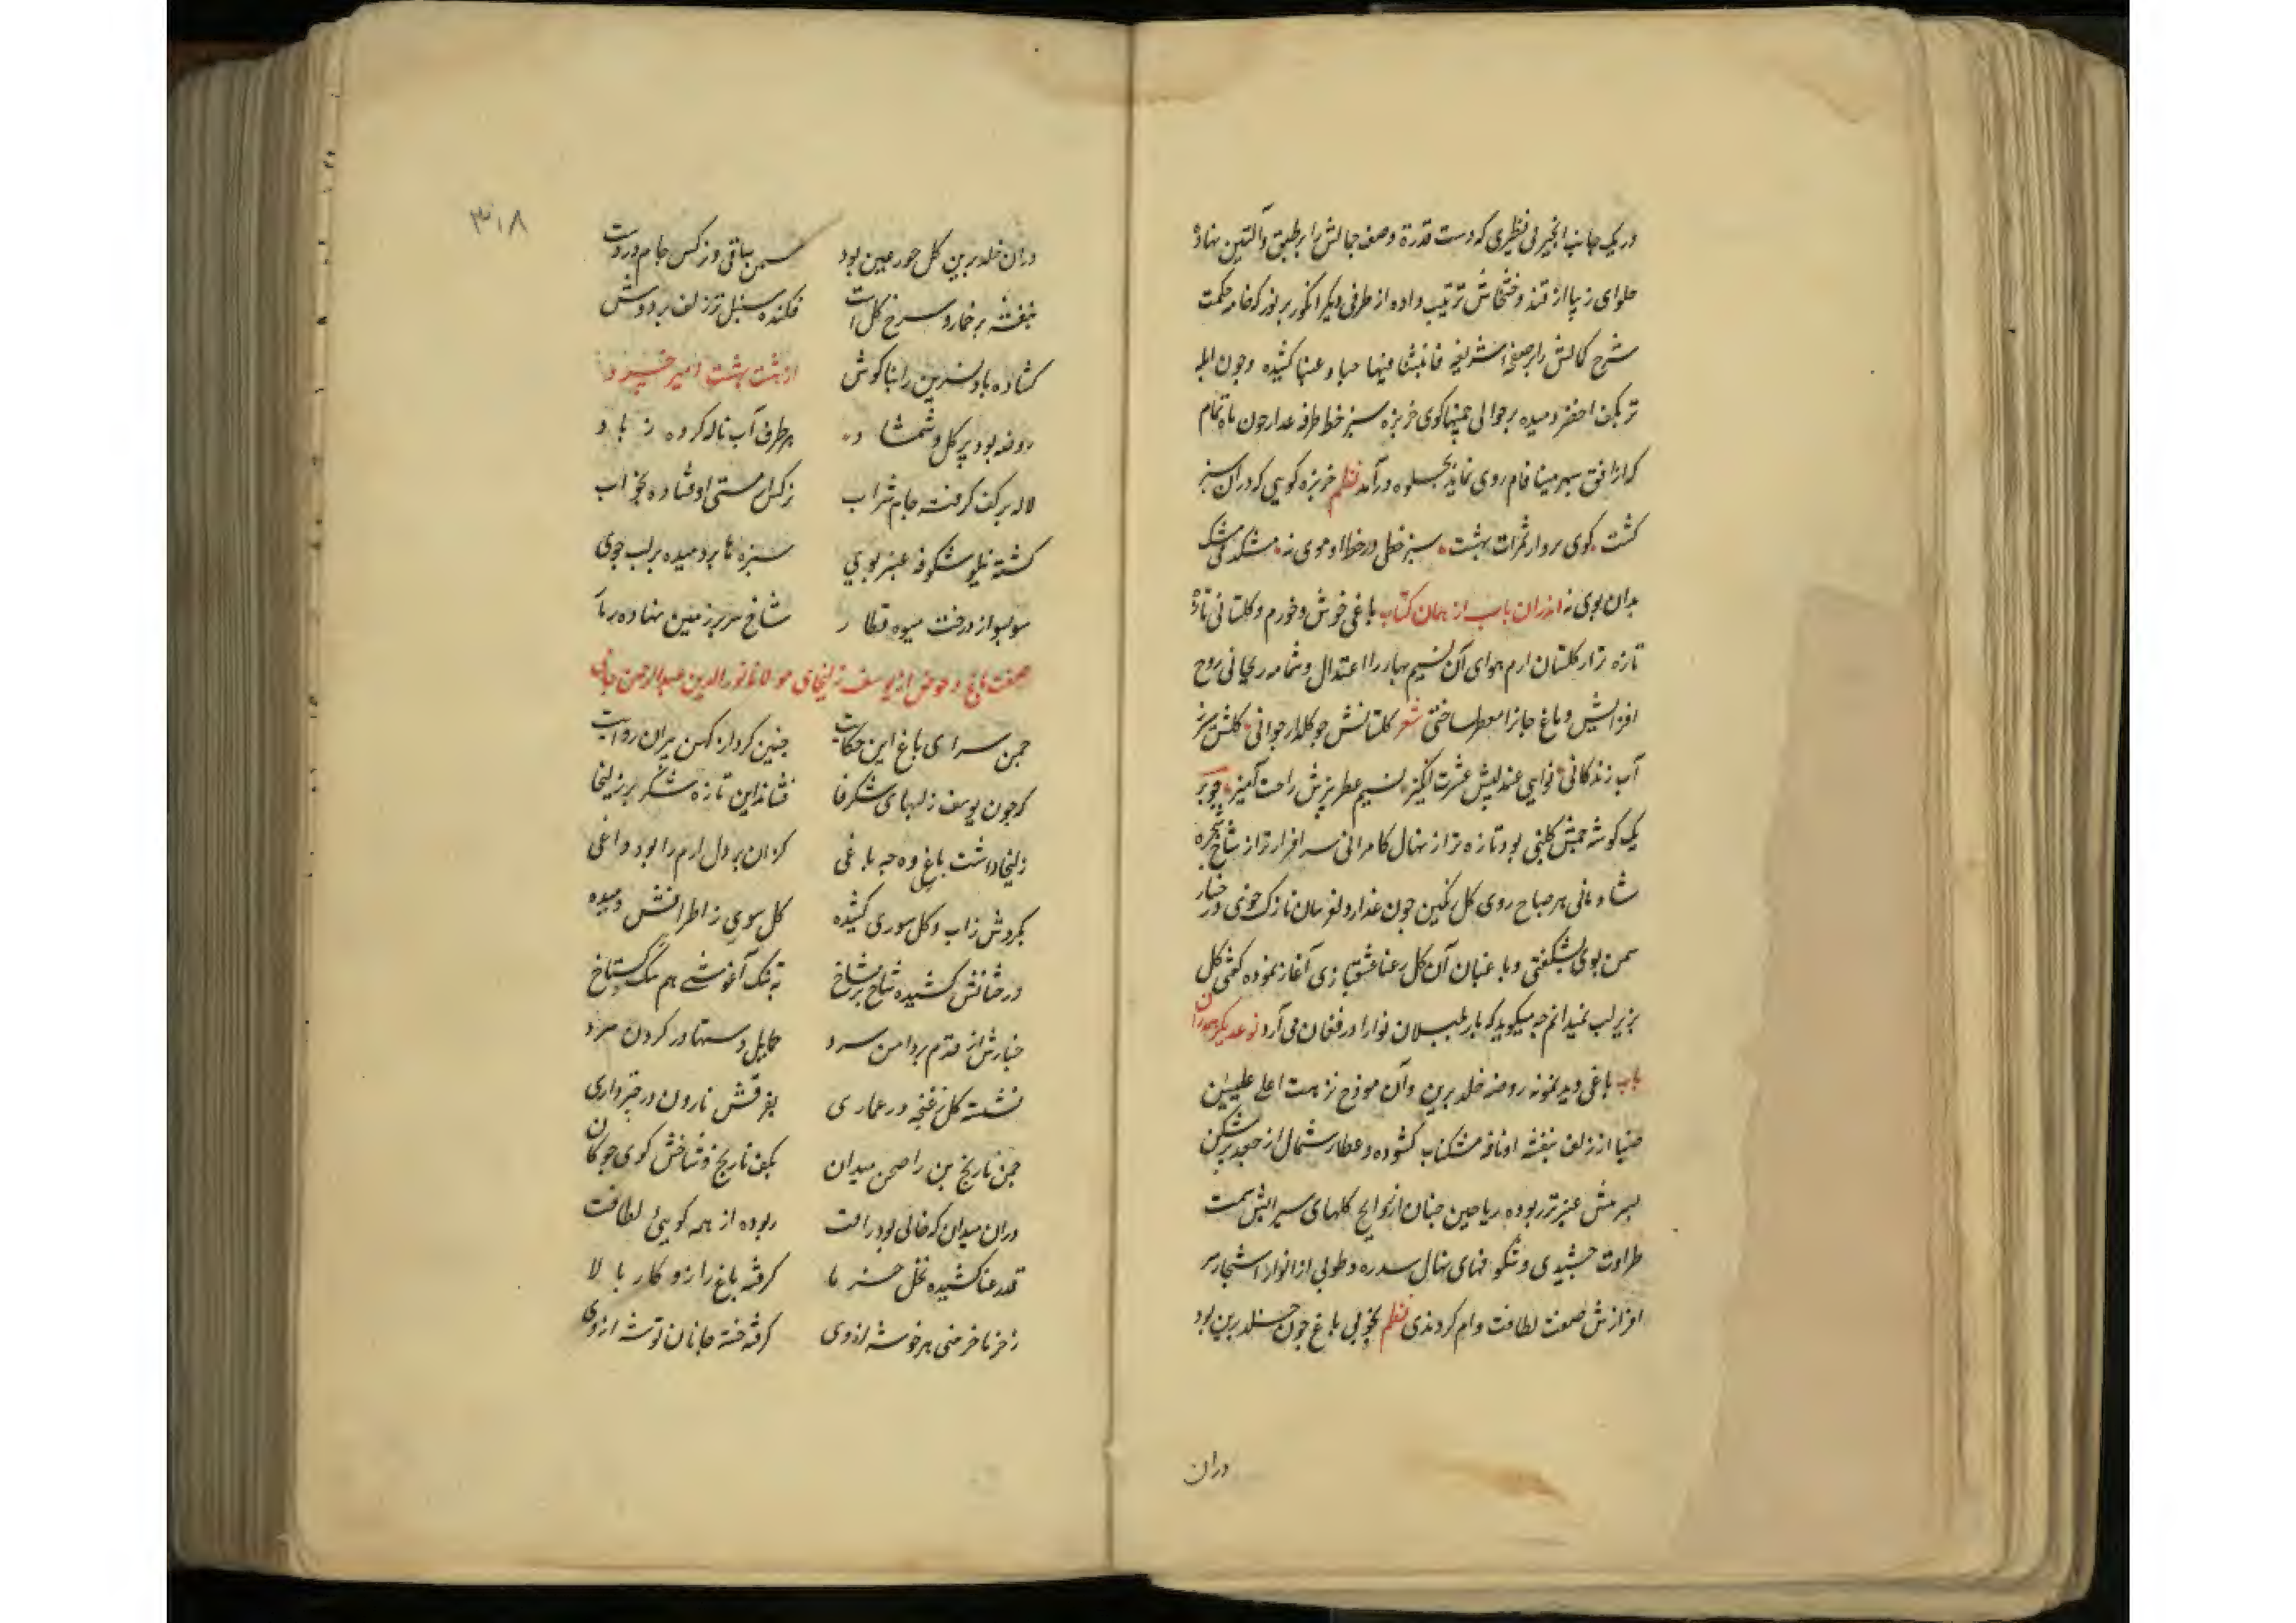 در یک جانب انجیر بی نظیری که دست قدرة وصف جمالش را بر طبق والتین نهاده
حلوای زیبا از قند و خشخاش ترتیب داده از طرفی دیگر انگور پر نور که خامه حکمت
شرح کمالش را بر صحیفه شریفه فانبتنا فیها حبا و عنبا کشیده و چون
تر بکف اخضر دمیده بر حوالی چمنها کوی خربزه سبز خط طرفه عذار چون ماه تمام
که از افق سپهر مینا فام روی نماید بجلوه درآمد نظم خربزه کویی که دران سبز
کشت کوی بر واز ثمرات بهشت سبز خطی در خط او موی نه مشک
بدان بوی نه اندران باب از همان کتاب باغی خوش و خورم و کلستانی تازه
تازه تر از کلستان ارم هوای آن نسیم بهار را اعتدال و شمامه ریحانی روح
افزایش دماغ جانرا معطر ساختی شعر کلستانش چو کلزار جوانی کلش سیر
آب زندکانی نوایی عندلیبش عشرت انکیز نسیم عطر بیزش راحت آمیز چو بر
یک کوشه چمنش کلبنی بود تازه تر از نهال کامرانی سر افرازتر از شاخ شجره
شادمانی هر صباح روی کل رنکین چون عذار دلفریبان نازک خوی و رخسار
سمن بوی بشکفتی و باغبان آن کل رعنا عشقبازی آغاز نموده کفتی کل
بزیر لب نمیدانم چه میکوید که باز بلبلان نوا را در فغان می آرد نوعدیکر همدران
باب باغی دید نمونه روضه خلد برین وآن موذج نزهت اعلی علیین
صبا از زلف بنفشه او نافه مشکناب کشوده و عطار شمال از جعد پرشکن
عنبر تر ربوده ریاحین جنان از روایح کلهای سیرابش سمت
طراوت چشیدی و شکوفهای نهال سدره و طوبی از انوار اشجار سر
افرازش صفت لطافت وام کردندی نظم بخوبی باغ چون خلد برین بود
دران
۳۱۸
دران خلد برین کل حور عین بود سمن ساقی و نرکس جام در دست
بنفشه در خمار و سرخ کل است فکنده سنبل تر زلف بر دوش
کشاده باد نسرین را بناکوش از هشت بهشت امیر خسرو
روضه بود پر کل و شمشاد هر طرف آب ناله کرده ز باد
لاله بر کف کرفته جام شراب نرکس مستی اوفتاده بخواب
کشته نیلو شکوفه عنبر بوی سبزه تا بر دمیده بر لب جوی
سو بسو از درخت میوه قطار شاخ سر بر زمین نهاده ز بار
صفت باغ و حوض از یوسف زلیخای مولانا نورالدین عبدالرحمن جامی
چمن سرای باغ این حکایت چنین کرد از کهن پیران روایت
که چون یوسف ز لبهای شکرخا فشاند این تازه شکر بر زلیخا
زلیخا داشت باغی وه چه باغی کزان بر دل ارم را بود داغی
بکردش زاب و کل سوری کشیده کل سوری ز اطرافش دمیده
درختانش کشیده شاخ بر شاخ به تنک آغوشی هم نیک کستاخ
چنارش از قدم بر دامن سرو حمایل دستها در کردن سرو
نشسته کل ز غنچه در عماری بفرقش نارون در چترداری
چمن نارنج بن را صحن میدان بکف نارنج و شاخش کوی چوکان
دران میدان که خالی بود زآفت ربوده از همه کویی لطافت
قد رعنا کشیده نخل خرما کرفته باغ را زو کار بالا
ز خرما خرمنی هر خوشه از وی کرفته خسته جانان توشه از وی